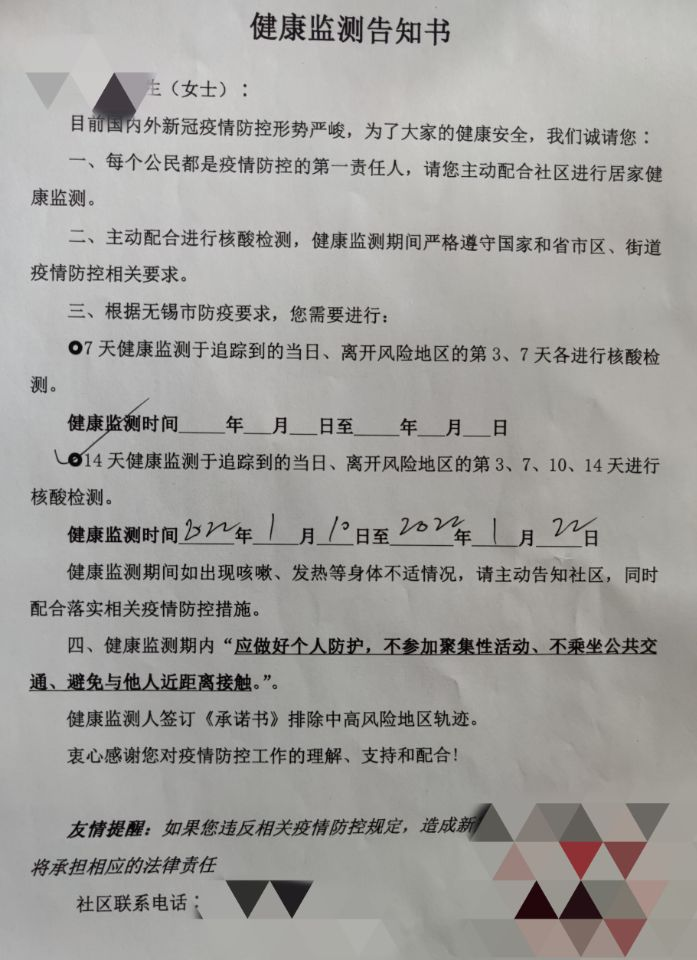 健康监测告知书
生（女士）：
目前国内外新冠疫情防控形势严峻，为了大家的健康安全，我们诚请您：
一、每个公民都是疫情防控的第一责任人，请您主动配合社区进行居家健
康监测。
二、主动配合进行核酸检测，健康监测期间严格遵守国家和省市区、街道
疫情防控相关要求。
三、根据无锡市防疫要求，您需要进行：
7 天健康监测于追踪到的当日、离开风险地区的第 3、7 天各进行核酸检
测。
健康监测时间_____年___月___日至_____年___月___日
14 天健康监测于追踪到的当日、离开风险地区的第 3、7、10、14 天进行
核酸检测。
健康监测时间2022年1月10日至2022年1月22日
健康监测期间如出现咳嗽、发热等身体不适情况，请主动告知社区，同时
配合落实相关疫情防控措施。
四、健康监测期内“应做好个人防护，不参加聚集性活动、不乘坐公共交
通、避免与他人近距离接触。”。
健康监测人签订《承诺书》排除中高风险地区轨迹。
衷心感谢您对疫情防控工作的理解、支持和配合！
友情提醒：如果您违反相关疫情防控规定，造成新
将承担相应的法律责任
社区联系电话：